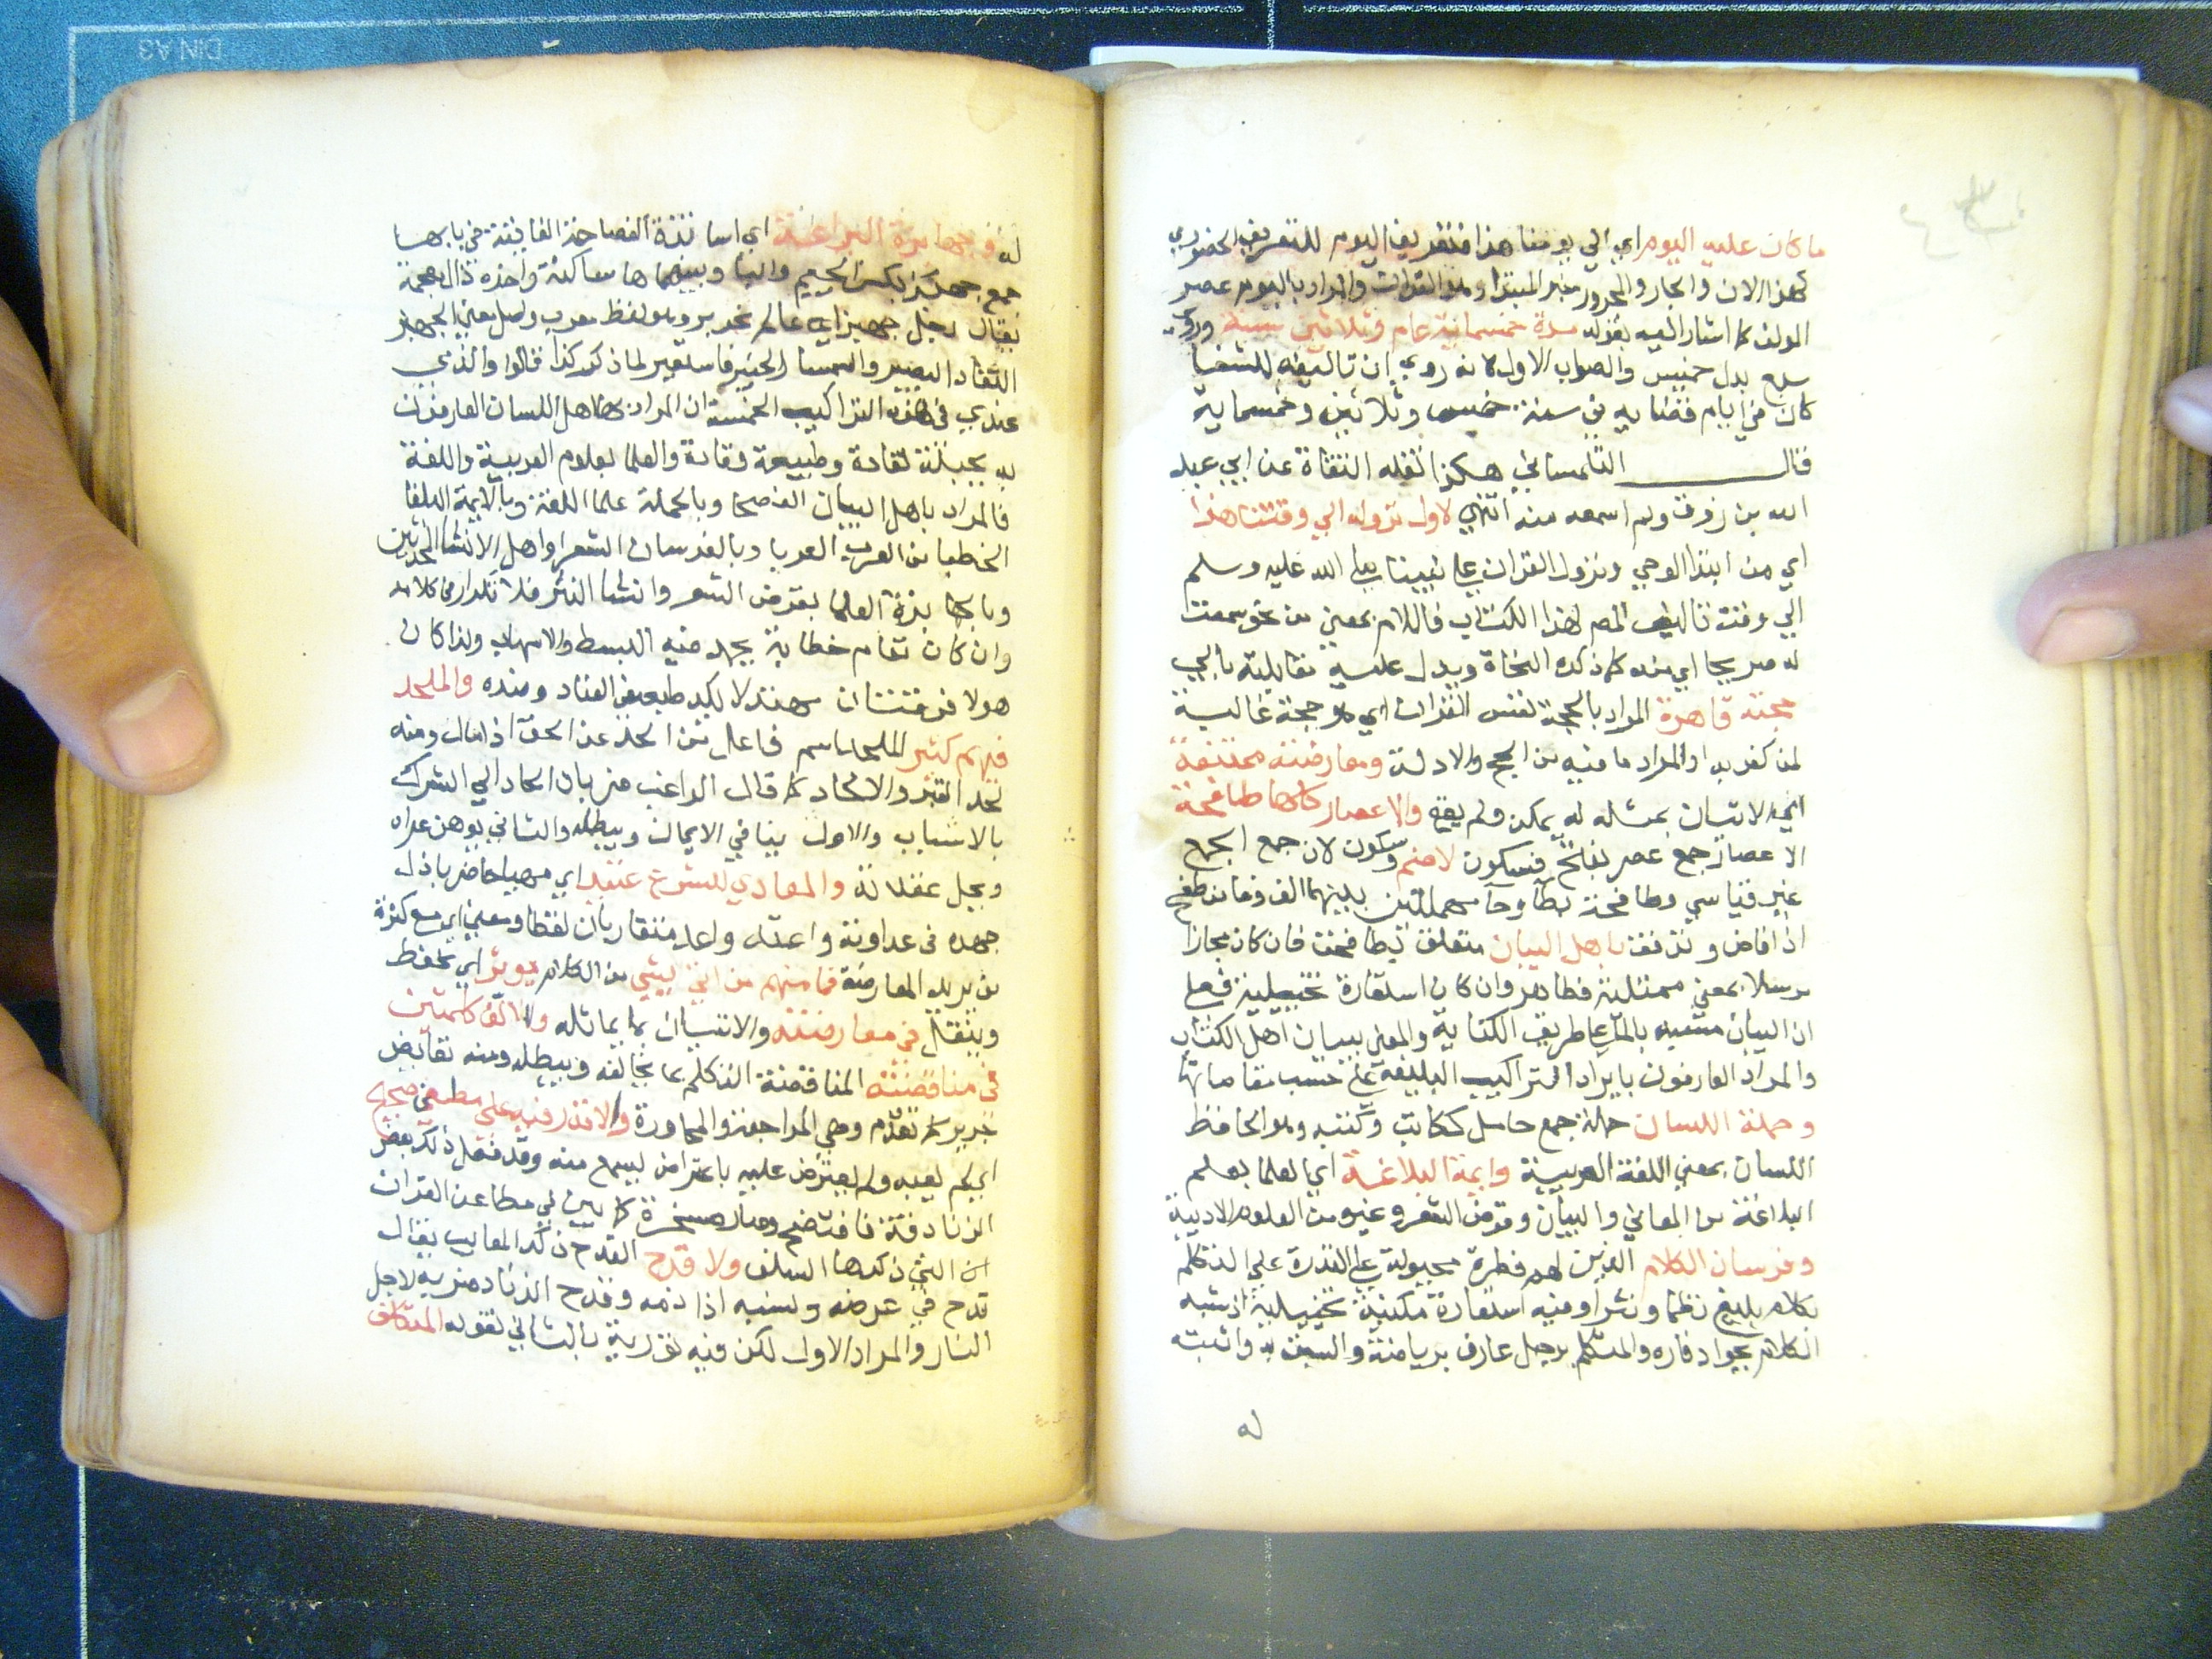 ما كان عليه اليوم اي الي يومنا هذا فتعريف اليوم للتعريف الحضوري
كهذا الان والجار والمجرور خبر المبتدا وهو القران والمراد باليوم عصر
المولف كما اشار اليه بقوله مدة خمسماية عام وثلاثين سنة وروي
سبع بدل خمس والصواب الاول لانه روي ان تاليفه للشفا
كان في ايام قضايه في سنة خمس وثلاثين وخمسماية
قال التلمساني هكذا نقله الثقاة عن ابي عبد
الله بن زفرف ولم اسمعه منه انتهي لاول نزوله الي وقتنا هذا
اي من ابتدا الوحي ونزول القران علي نبينا صلي الله عليه وسلم
الي وقت تاليف المص لهذا الكتاب فاللام بمعني من نحو سمعت
له صريخا اي منه كما ذكره النحاة ويدل عليه مقابلته بالي
حجته قاهرة المراد بالحجة نفس القران اي هو حجة غالبة
لمن كفر به او المراد ما فيه من الحجج والادلة ومعارضته ممتنعة
اي الاتيان بمثله لم يمكن ولم يقع والاعصار كلها طافحة
الاعصار جمع عصر بفتح فسكون لا ضم وسكون لان جمع الجمع
غير قياسي وطافحة بطا وحا مهملتين بينهما الف وفا من طفح
اذا فاض وتدفق باهل البيان متعلق بطافحة فان كان مجازا
مرسلا بمعني ممتلية فظاهر وان كان استعارة تخييلية فعلي
ان البيان مشبه بالما علي طريق الكناية والمعني ببيان اهل الكتاب
والمراد العارفون بايراد التراكيب البليغة علي حسب مقاماتها
وحملة اللسان حملة جمع حامل ككاتب وكتبة وهو الحافظ
اللسان بمعني اللغة العربية وايمة البلاغة اي العلما بعلم
البلاغة من المعاني والبيان وقرض الشعر وغيره من العلوم الادبية
وفرسان الكلام الذين لهم فطرة مجبولة علي القدرة علي التكلم
بكلام بليغ نظما ونثرا وفيه استعارة مكنية تخييلية اذ شبه
الكلام بجواد فاره والمتكلم برجل عارف برياضته والسبق به واثبت
له
له وجهابذة البراعة اي اساتذة الفصاحة الفايقة في بابها
جمع جهبذ بكسر الجيم والبا وبينهما ها ساكنة واخره ذال معجمة
يقال رجل جهبذ اي عالم نحرير وهو لفظ معرب واصل معني الجهبذ
النقاد البصير والسمسار الخبير فاستعير لما ذكر كذا قالوا والذي
عندي في هذه التراكيب الخمسة ان المراد بها اهل اللسان العارفون
به بجبلة نقادة وطبيعة وقادة والعلما بعلوم العربية واللغة
فالمراد باهل البيان الفصحا وبالحملة علما اللغة وبالايمة البلغا
الخطبا من العرب العربا وبالفرسان الشعرا واهل الانشا المحدثين
وبالجهابذة العلما بقرض الشعر وانشا النثر فلا تكرار في كلامه
وان كان مقام خطابة يحمد فيه البسط والاسهاب ولذا كان
هولا فرقتان مهتد لا يكدر طبعه العناد وضده والملحد
فيهم كثير الملحد اسم فاعل من الحد عن الحق اذا مال ومنه
لحد القبر والالحاد كما قال الراغب ضربان الحاد الي الشرك
بالاسباب والاول ينافي الايمان ويبطله والثاني يوهن عراه
ويحل عقدته والمعادي للشرع عتيد اي مهيا حاضر باذل
جهده في عداوته واعتد واعد متقاربان لفظا ومعني اي مع كثرة
من يريد المعارضة فما منهم من اتي بشي من الكلام يوثر اي يحفظ
وينقل في معارضته والاتيان بما يماثله ولا الف كلمتين
في مناقضته المناقضة التكلم بما يخالفه ويبطله ومنه نقايض
جرير كما تقدم وهي المراجعة والمحاورة ولا قدر فيه علي مطعن صحيح
اي لم يعبه ولم يعترض عليه باعتراض يسمع منه وقد فعل ذلك بعض
الزنادقة فافتضح وصار مسخرة كما بين في مطاعن القران
التي ذكرها السلف ولا قدح القدح ذكر المعايب يقال
قدح في عرضه ونسبه اذا ذمه وقدح الزناد ضربه لاجل
النار والمراد الاول لكن فيه تورية بالثاني لقوله المتكلف